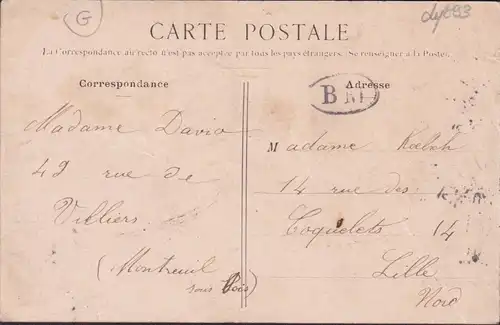 G
dyt93
CARTE POSTALE
La Correspondance au recto n'est pas acceptée par tous les pays étrangers. (Se renseigner à la Poste).
Correspondance
Adresse
B
Madame Davio
42 rue de
Villiers
(Montreuil
sous Bois)
Madame
14 rue des
Coquelets 14
Lille
Nord